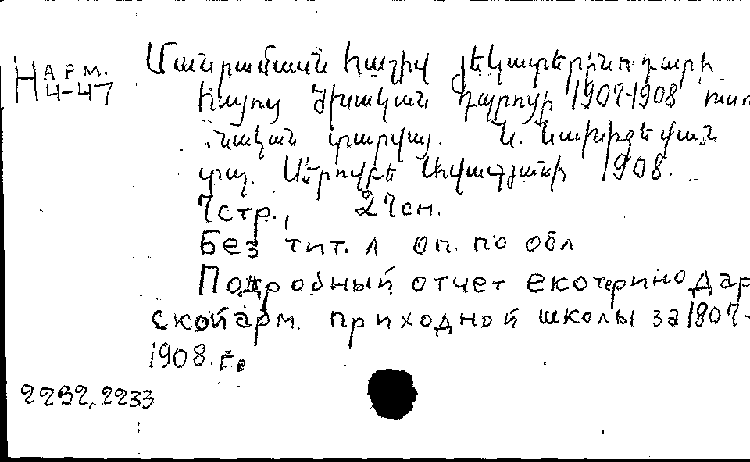 Н АРМ. 4-47
Մանրամասն հաշիվ Եկատերինոդարի
հայոց ծխական դպրոցի 1907-1908 ուսում
նական տարվայ. Ն. Նախիջեվան
տպ. Սերովբէ Ավագյանի 1908.
7 стр., 27 см.
Без тит. л оп. по обл
Подробный отчет екотеринодар
ской арм. приходной школы за 1907-
1908. г.
2232, 2233